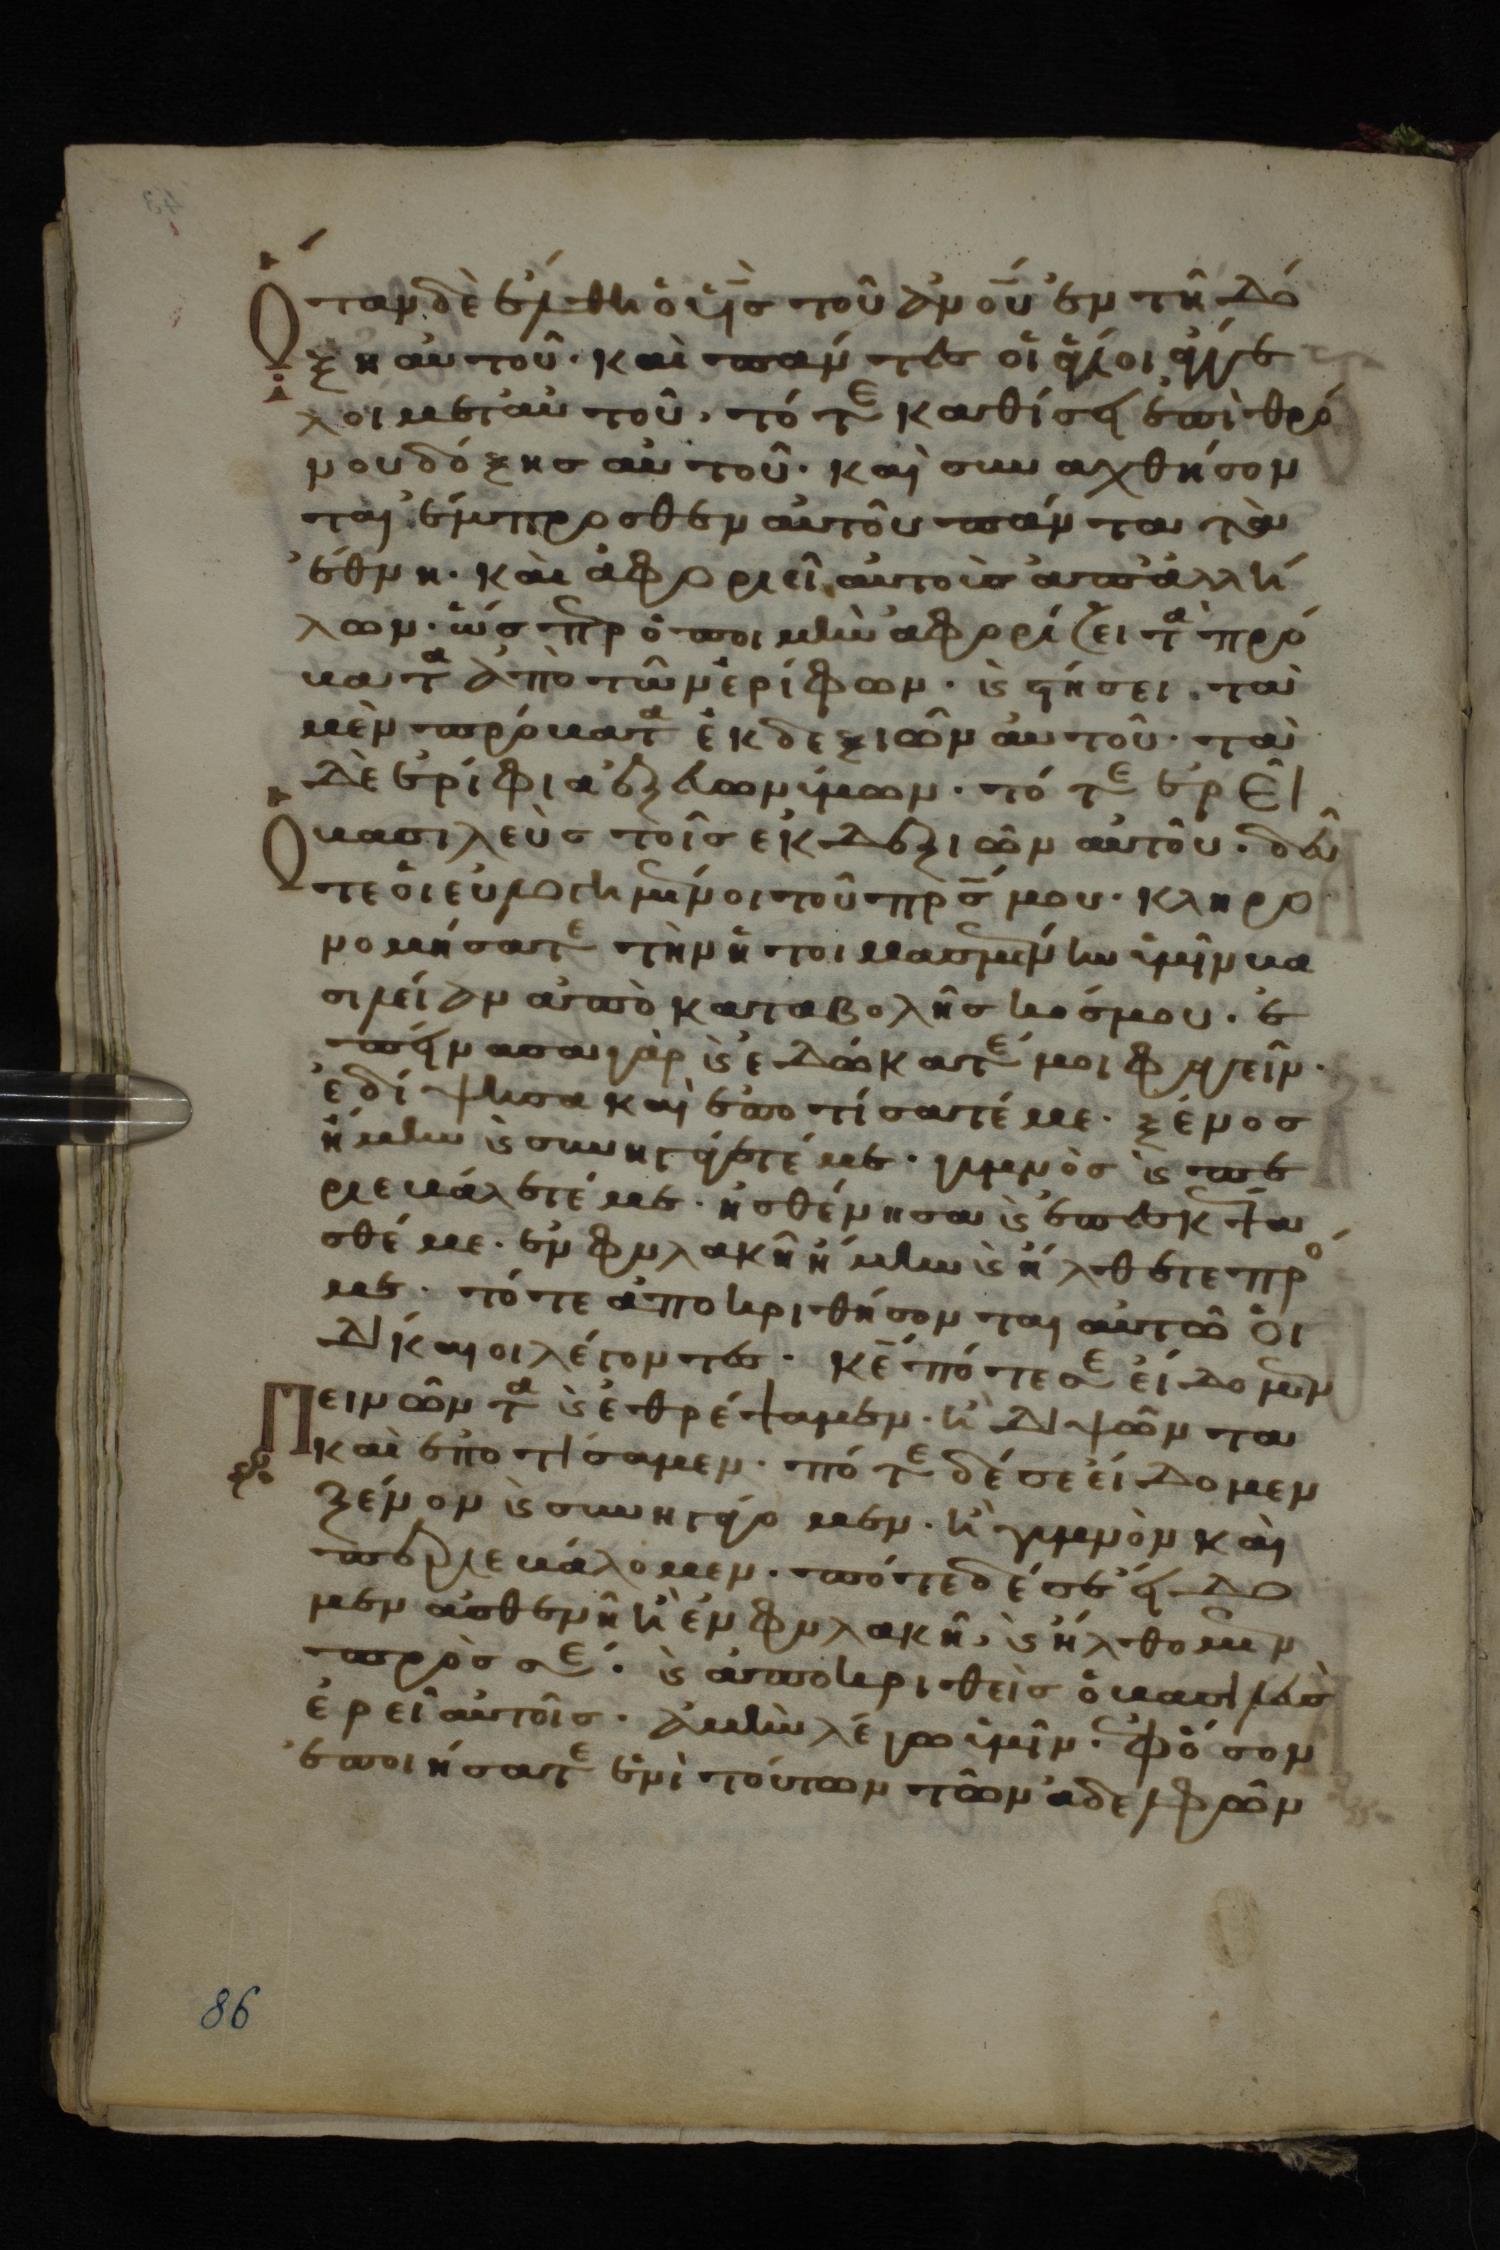 Ὅταν δὲ ἔλθη ὁ υἱ̅ς τοῦ ἀνου̅ ἐν τῆ δό
ξη αὐτοῦ· καὶ πάντες οἱ ἅγιοι ἄγγε
λοι μετ' αὐτοῦ, τότε καθίσει ἐπὶ θρό
νου δόξης αὐτοῦ· καὶ συναχθήσον
ται ἔμπροσθεν αὐτοῦ πάντα τὰ
ἔθνη· καὶ ἀφοριεῖ αὐτοὺς ἀπ' ἀλλή
λων· ὥσπερ ὁ ποιμὴν ἀφορίζει τὰ πρό
βατα ἀπὸ τῶν ἐρίφων· ϗ στήσει τὰ
μὲν πρόβατα ἐκ δεξιῶν αὐτοῦ· τὰ
δὲ ἐρίφια ἐξ εὐωνύμων· τότε ἐρεῖ
Ὁ βασιλεὺς τοῖς ἐκ δεξιῶν αὐτοῦ· δεῦ
τε οἱ εὐλογημένοι τοῦ πρ̅ς μου· κληρο
νομήσατε τὴν ἡτοιμασμένην ὑμῖν βα
σιλείαν ἀπὸ καταβολῆς κόσμου· ἐ
πείνασα γὰρ ϗ ἐδώκατέ μοι φαγεῖν·
ἐδίψησα καὶ ἐποτίσατέ με· ξένος
ἤμην ϗ συνηγάγετέ με· γυμνὸς ϗ πε
ριεβάλετέ με· ἠσθένησα ϗ ἐπεσκέψα
σθέ με· ἐν φυλακῆ ἤμην ϗ ἤλθετε πρό
με· τότε ἀποκριθήσονται αὐτῶ οἱ
δίκαιοι λέγοντες· κε̅ πότε σὲ εἴδομεν
Πεινῶντα ϗ ἐθρέψαμεν· ἢ διψῶντα
καὶ ἐποτίσαμεν· πότε δέ σε εἴδομεν
ξένον ϗ συνηγάγομεν· ἢ γυμνὸν καὶ
περιεβάλομεν· πότε δέ σε εἴδο
μεν ἀσθενῆ ἢ ἐν φυλακῆ, ϗ ἤλθομεν
πρὸς σέ· ϗ ἀποκριθεὶς ὁ βασιλεὺς
ἐρεῖ αὐτοῖς· ἀμὴν λέγω ὑμῖν· ἐφ' ὅσον
ἐποιήσατε ἑνὶ τούτων τῶν ἀδελφῶν
86